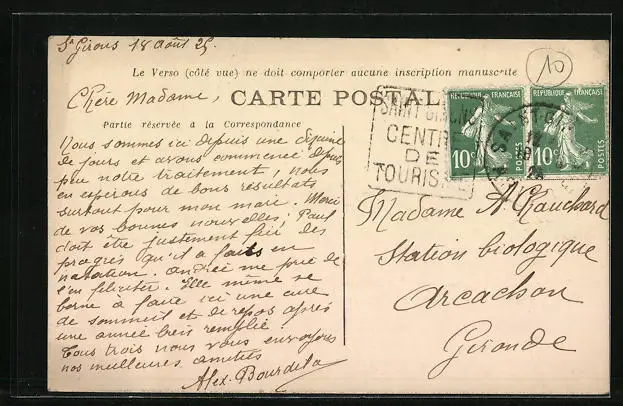 St Girons 18 août 25.
Le Verso (côté vue) ne doit comporter aucune inscription manuscrite
10
Chère Madame,
CARTE POSTAL
Partie réservée à la Correspondance
Nous sommes ici depuis une dizaine
de jours et avons commencé depuis
peu notre traitement, nous
en espérons de bons résultats
surtout pour mon mari. Merci
de vos bonnes nouvelles; Paul
doit être justement fier des
progrès qu'il a faits en
natation. Andrée me prie de
l'en féliciter. Elle même se
borne à faire ici une cure
de sommeil et de repos après
une année bien remplie
Tous trois nous vous envoyons
nos meilleures amitiés
Alex. Bourdela
SAINT GIRONS
CENTRE
DE
TOURISME
REPUBLIQUE FRANÇAISE
10c
POSTES
REPUBLIQUE FRANÇAISE
10c
POSTES
Madame A. Chauchard
Station biologique
Arcachon
Gironde